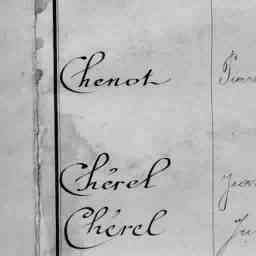 Chenot
Chérel
Chérel